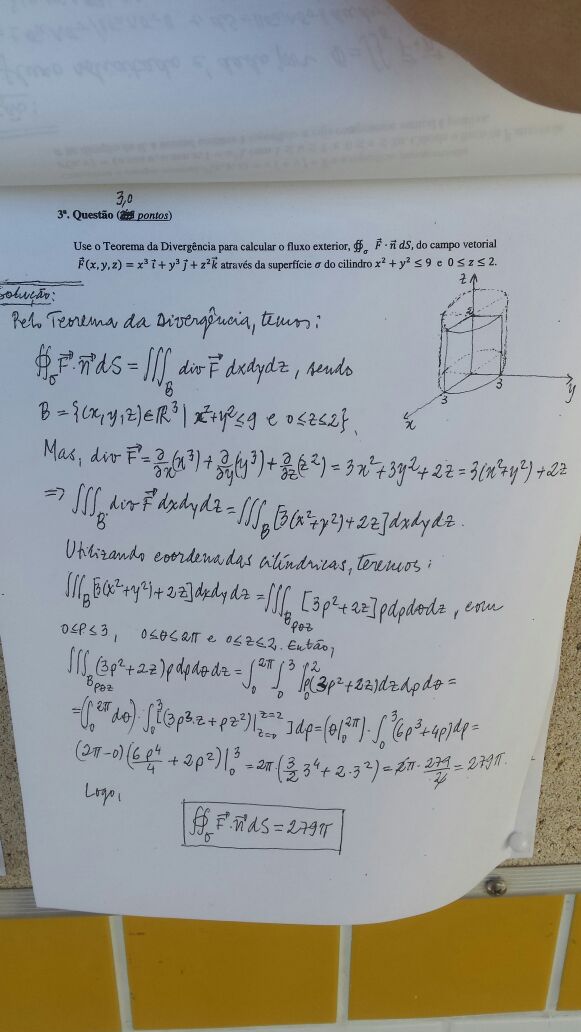 3,0
3ª. Questão (pontos)
Use o Teorema da Divergência para calcular o fluxo exterior, ∯σ F⃗ · n⃗ dS, do campo vetorial
F⃗(x, y, z) = x³ i⃗ + y³ j⃗ + z² k⃗ através da superfície σ do cilindro x² + y² ≤ 9 e 0 ≤ z ≤ 2.
Solução:
z
2
3
3
x
y
Pelo Teorema da Divergência, temos:
∯σ F⃗·n⃗ dS = ∭B div F⃗ dxdydz, sendo
B = {(x,y,z)∈ℝ³ | x²+y²≤9 e 0≤z≤2}.
Mas, div F⃗ = ∂/∂x(x³) + ∂/∂y(y³) + ∂/∂z(z²) = 3x²+3y²+2z = 3(x²+y²)+2z
⇒ ∭B div F⃗ dxdydz = ∭B [3(x²+y²)+2z] dxdydz.
Utilizando coordenadas cilíndricas, teremos:
∭B [3(x²+y²)+2z] dxdydz = ∭Bρθz [3ρ²+2z] ρdρdθdz, com
0≤ρ≤3, 0≤θ≤2π e 0≤z≤2. Então,
∭Bρθz (3ρ²+2z) ρdρdθdz = ∫₀^2π ∫₀³ ∫₀² ρ(3ρ²+2z) dz dρ dθ =
= (∫₀^2π dθ) · ∫₀³ [(3ρ³·z + ρz²)|z=0^z=2] dρ = (θ|₀^2π) · ∫₀³ (6ρ³+4ρ) dρ =
(2π-0)(6ρ⁴/4 + 2ρ²)|₀³ = 2π·(3/2 3⁴ + 2·3²) = 2π · 279/2 = 279π.
Logo,
∯σ F⃗·n⃗ dS = 279π